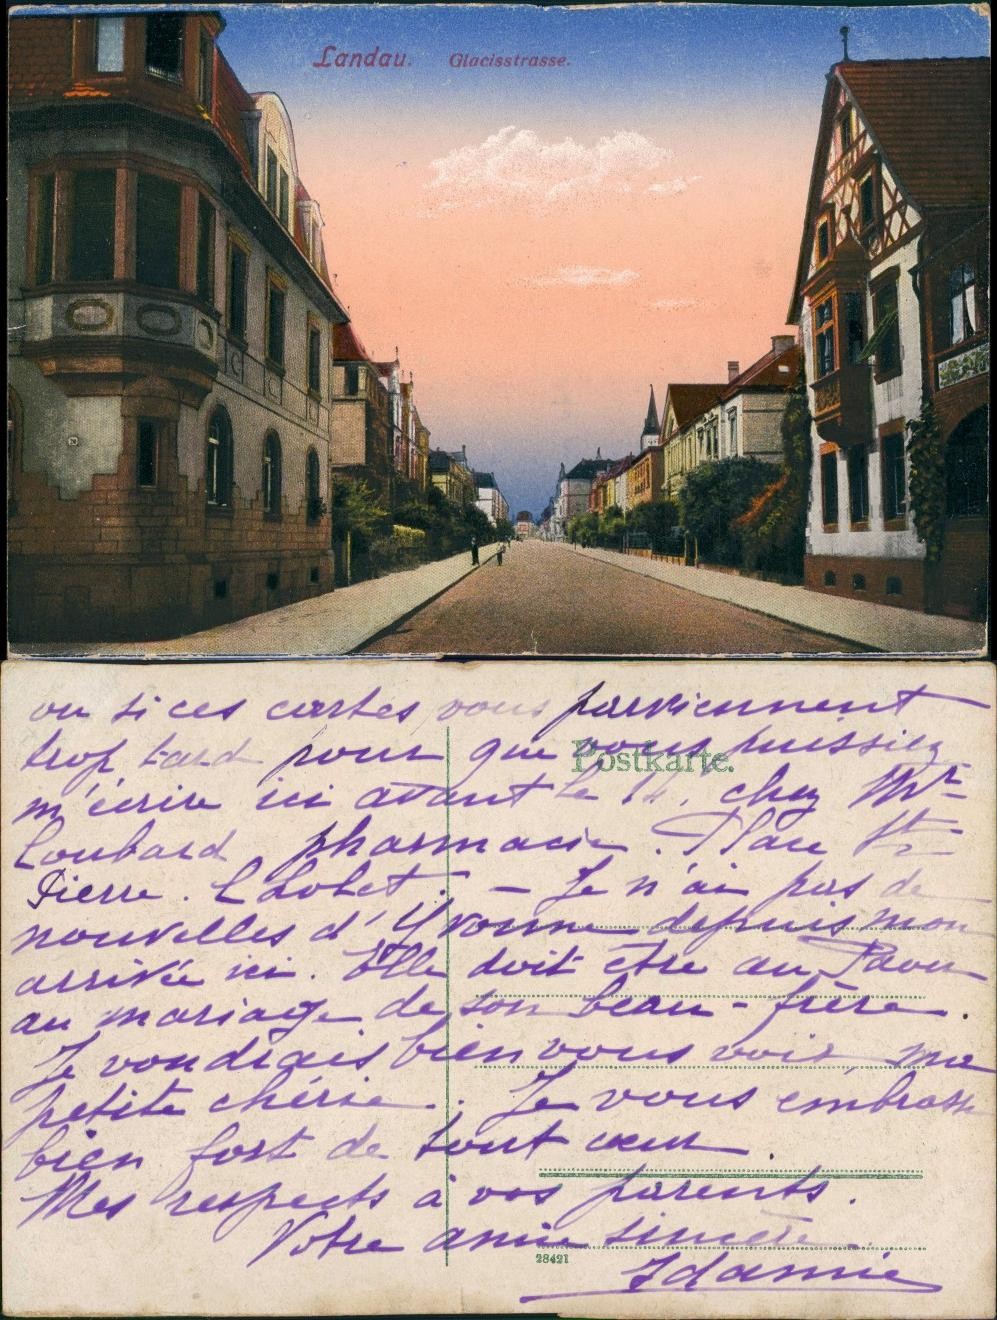 Landau. Glacisstrasse.
ou si ces cartes vous parviennent
trop tard pour que vous puissiez
Postkarte.
m'écrire ici avant le 14, chez Mr
Loubard pharmacie. Place St
Pierre. Cholet. - Je n'ai pas de
nouvelles d'Yvonne depuis mon
arrivée ici. Elle doit être au
au mariage de son beau-frère.
Je voudrais bien vous voir ma
petite chérie. Je vous embrasse
bien fort de tout cœur.
Mes respects à vos parents.
Votre amie sincère.
28421
Idamie